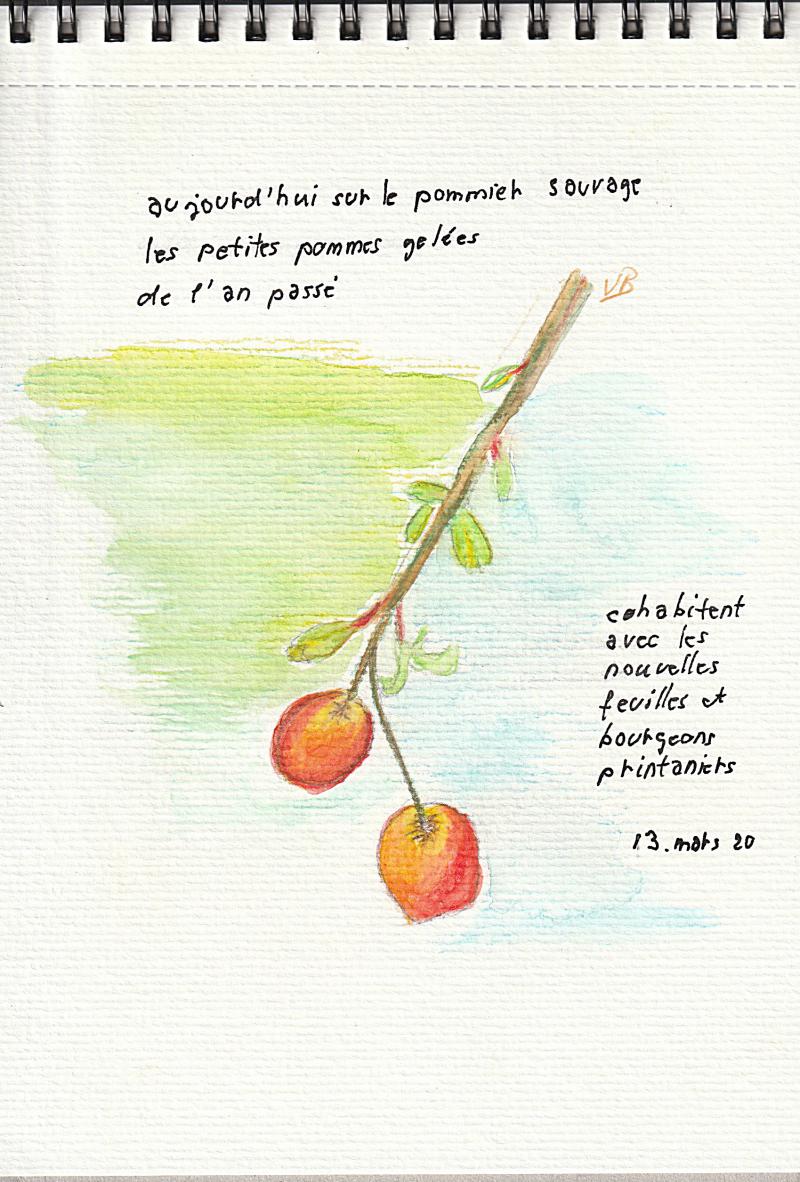 aujourd'hui sur le pommier sauvage
les petites pommes gelées
de l'an passé
VB
cohabitent
avec les
nouvelles
feuilles et
bourgeons
printaniers
13.mars 20